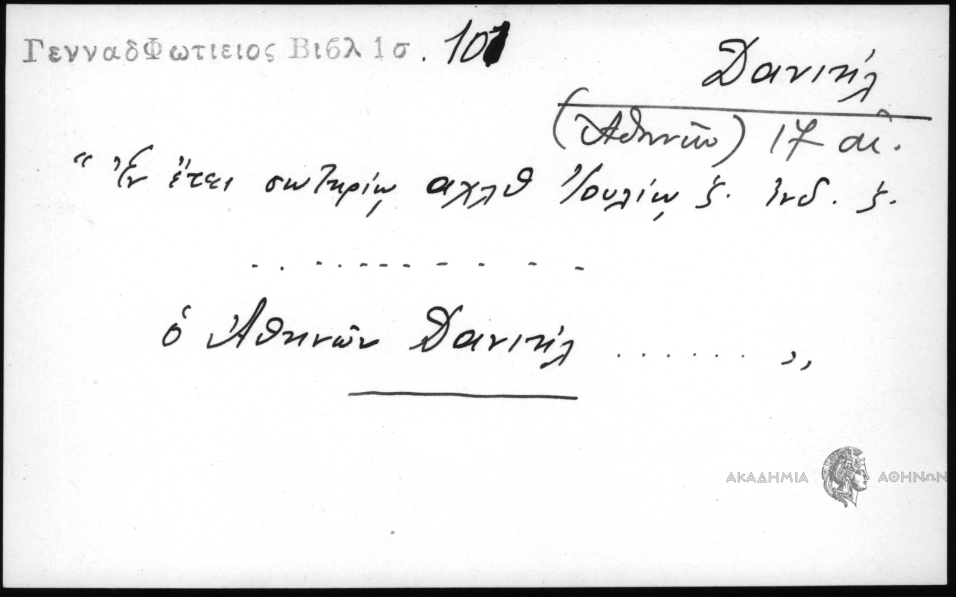 ΓενναδΦωτιειος Βιβλ 1σ. 101
Δανιήλ
(Ἀθηνῶν) 17 αἰ.
"Ἐν ἔτει σωτηρίῳ αχλθ Ἰουλίῳ ζ. ἰνδ. ζ.
. . . . . . . . . . . .
ὁ Ἀθηνῶν Δανιήλ . . . . . . . "
ΑΚΑΔΗΜΙΑ ΑΘΗΝΩΝ